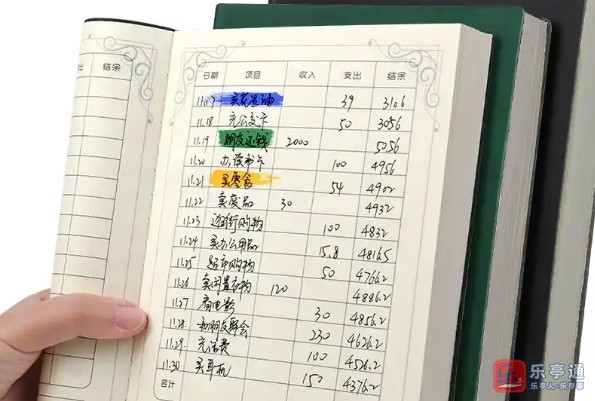 结余
日期 项目 收入 支出 结余
11.17 买花生油 39 3106
11.18 充公交卡 50 3056
11.19 朋友还钱 2000 5056
11.20 办读书卡 100 4956
11.21 买零食 54 4902
11.22 卖废品 30 4932
11.23 购物 100 4832
11.24 买办公用品 15.8 4816.5
11.25 超市购物 50 4766.2
11.26 卖闲置衣物 120 4886.2
11.27 看电影 30 4856.2
11.28 和朋友聚会 230 4626.2
11.29 充话费 100 4526.2
11.30 买耳机 150 4376.2
合计
乐亭通
乐亭人·乐亭事